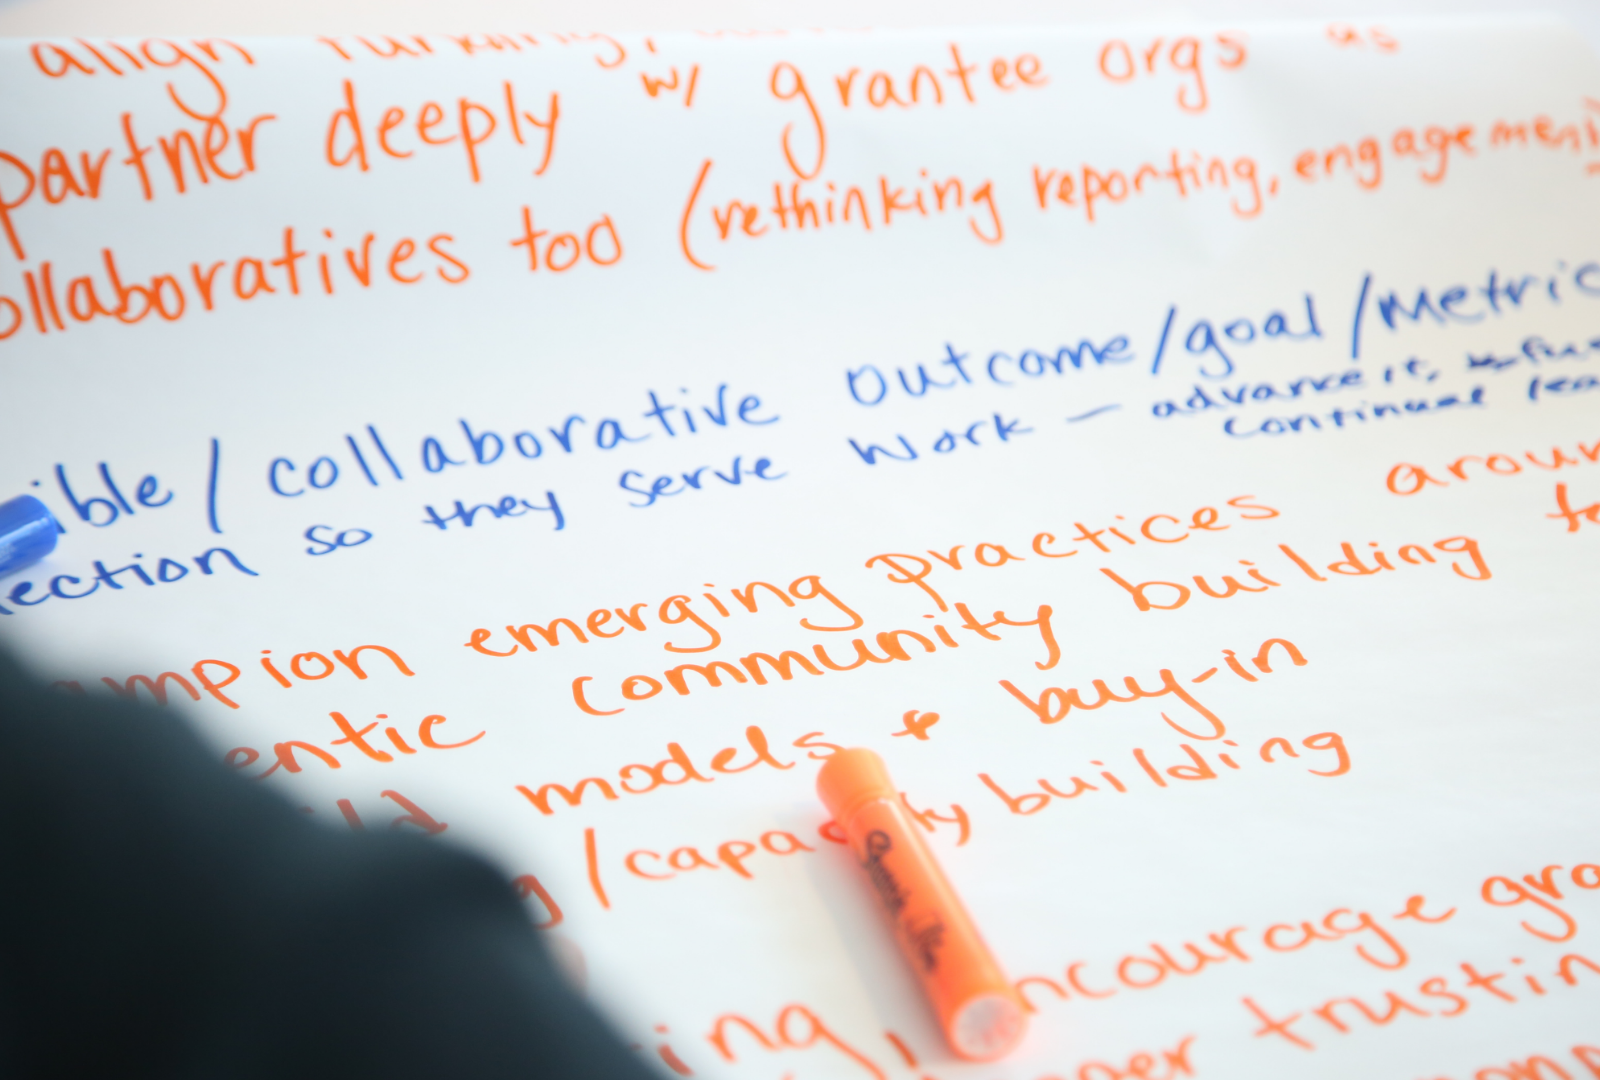 align funding,
partner deeply w/ grantee orgs as
ollaboratives too (rethinking reporting, engagement
ible / collaborative outcome/goal/metric
lection so they serve work — advance it,
continue
ampion emerging practices aroun
entic community building
ild models + buy-in
g /capacity building
encourage gra
ing, trustin